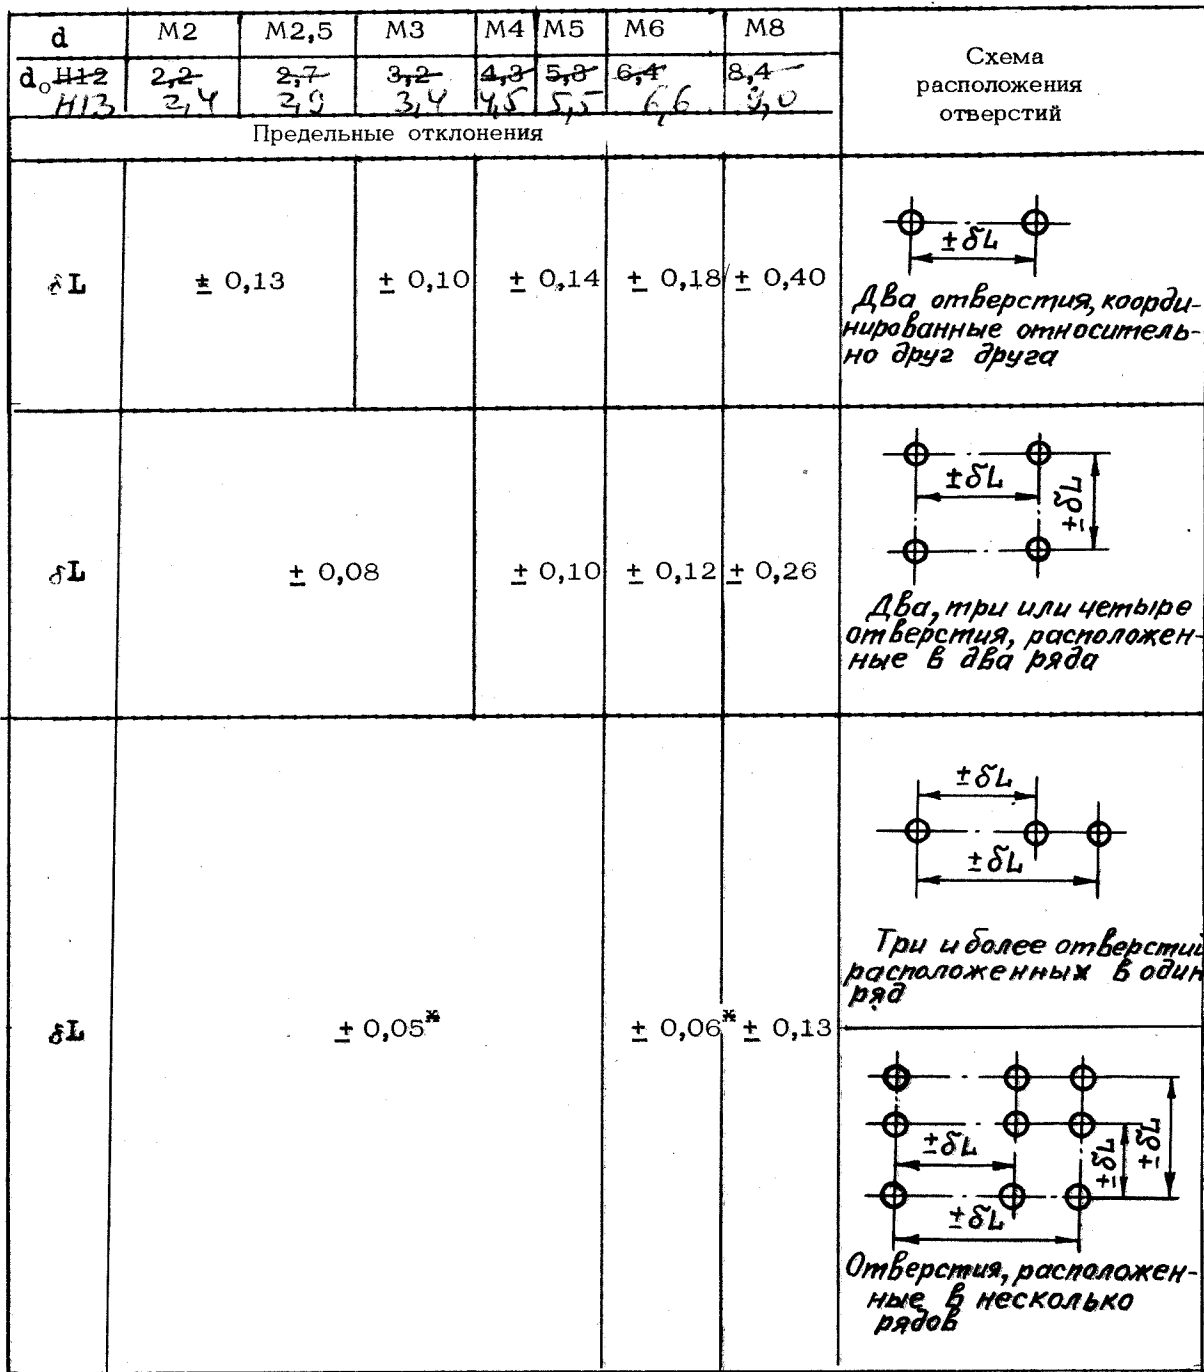 d M2 M2,5 M3 M4 M5 M6 M8
Схема
расположения
отверстий
d₀ H12 2,2 2,7 3,2 4,3 5,3 6,4 8,4
H13 2,4 2,9 3,4 4,5 5,5 6,6 9,0
Предельные отклонения
δL ± 0,13 ± 0,10 ± 0,14 ± 0,18 ± 0,40
±δL
Два отверстия, коорди-
нированные относитель-
но друг друга
δL ± 0,08 ± 0,10 ± 0,12 ± 0,26
±δL
±δL
Два, три или четыре
отверстия, расположен-
ные в два ряда
δL ± 0,05* ± 0,06* ± 0,13
±δL
±δL
Три и более отверстий
расположенных в один
ряд
±δL
±δL
±δL
±δL
Отверстия, расположен-
ные в несколько
рядов